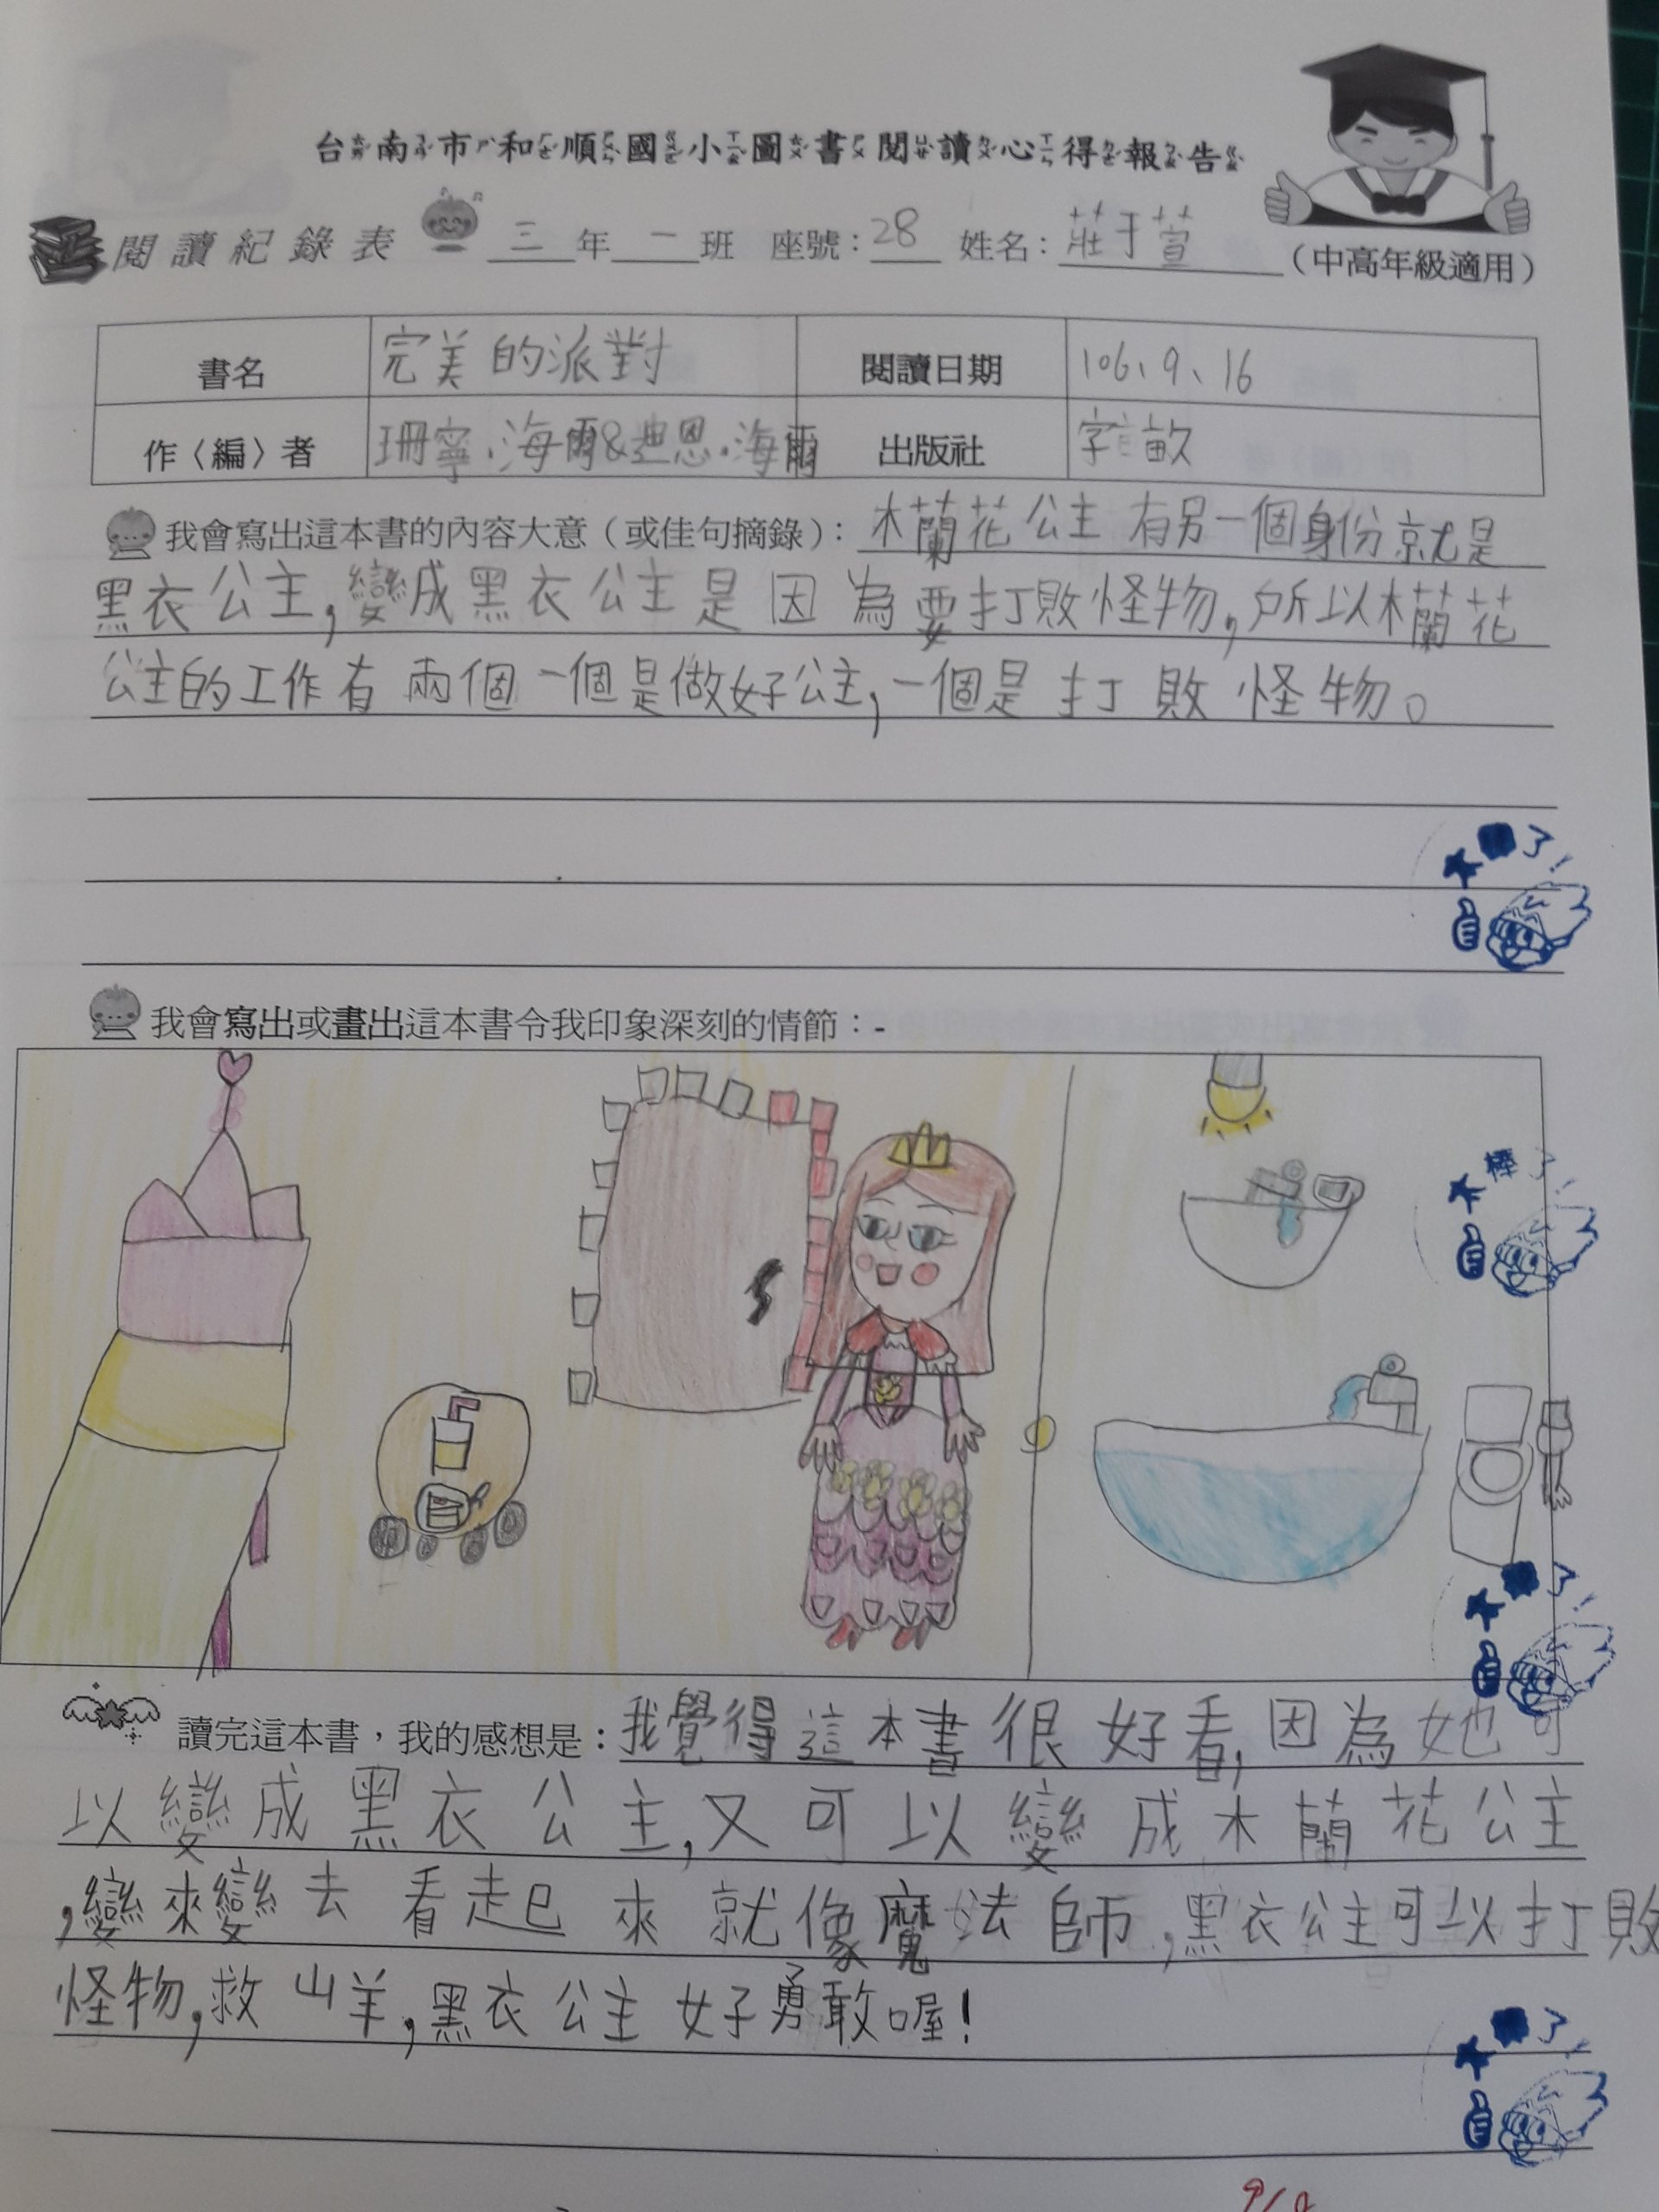 台南市和順國小圖書閱讀心得報告
閱讀紀錄表 三年二班 座號：28 姓名：莊于萱（中高年級適用）
書名 完美的派對 閱讀日期 106、9、16
作〈編〉者 珊寧．海爾&迪恩．海爾 出版社 字畝
我會寫出這本書的內容大意（或佳句摘錄）：木蘭花公主有另一個身份就是
黑衣公主,變成黑衣公主是因為要打敗怪物,所以木蘭花
公主的工作有兩個一個是做好公主,一個是打敗怪物。
了!
我會寫出或畫出這本書令我印象深刻的情節：-
棒了
了!
讀完這本書，我的感想是：我覺得這本書很好看,因為她可
以變成黑衣公主,又可以變成木蘭花公主
,變來變去看起來就像魔法師,黑衣公主可以打敗
怪物,救山羊,黑衣公主好勇敢喔!
了!